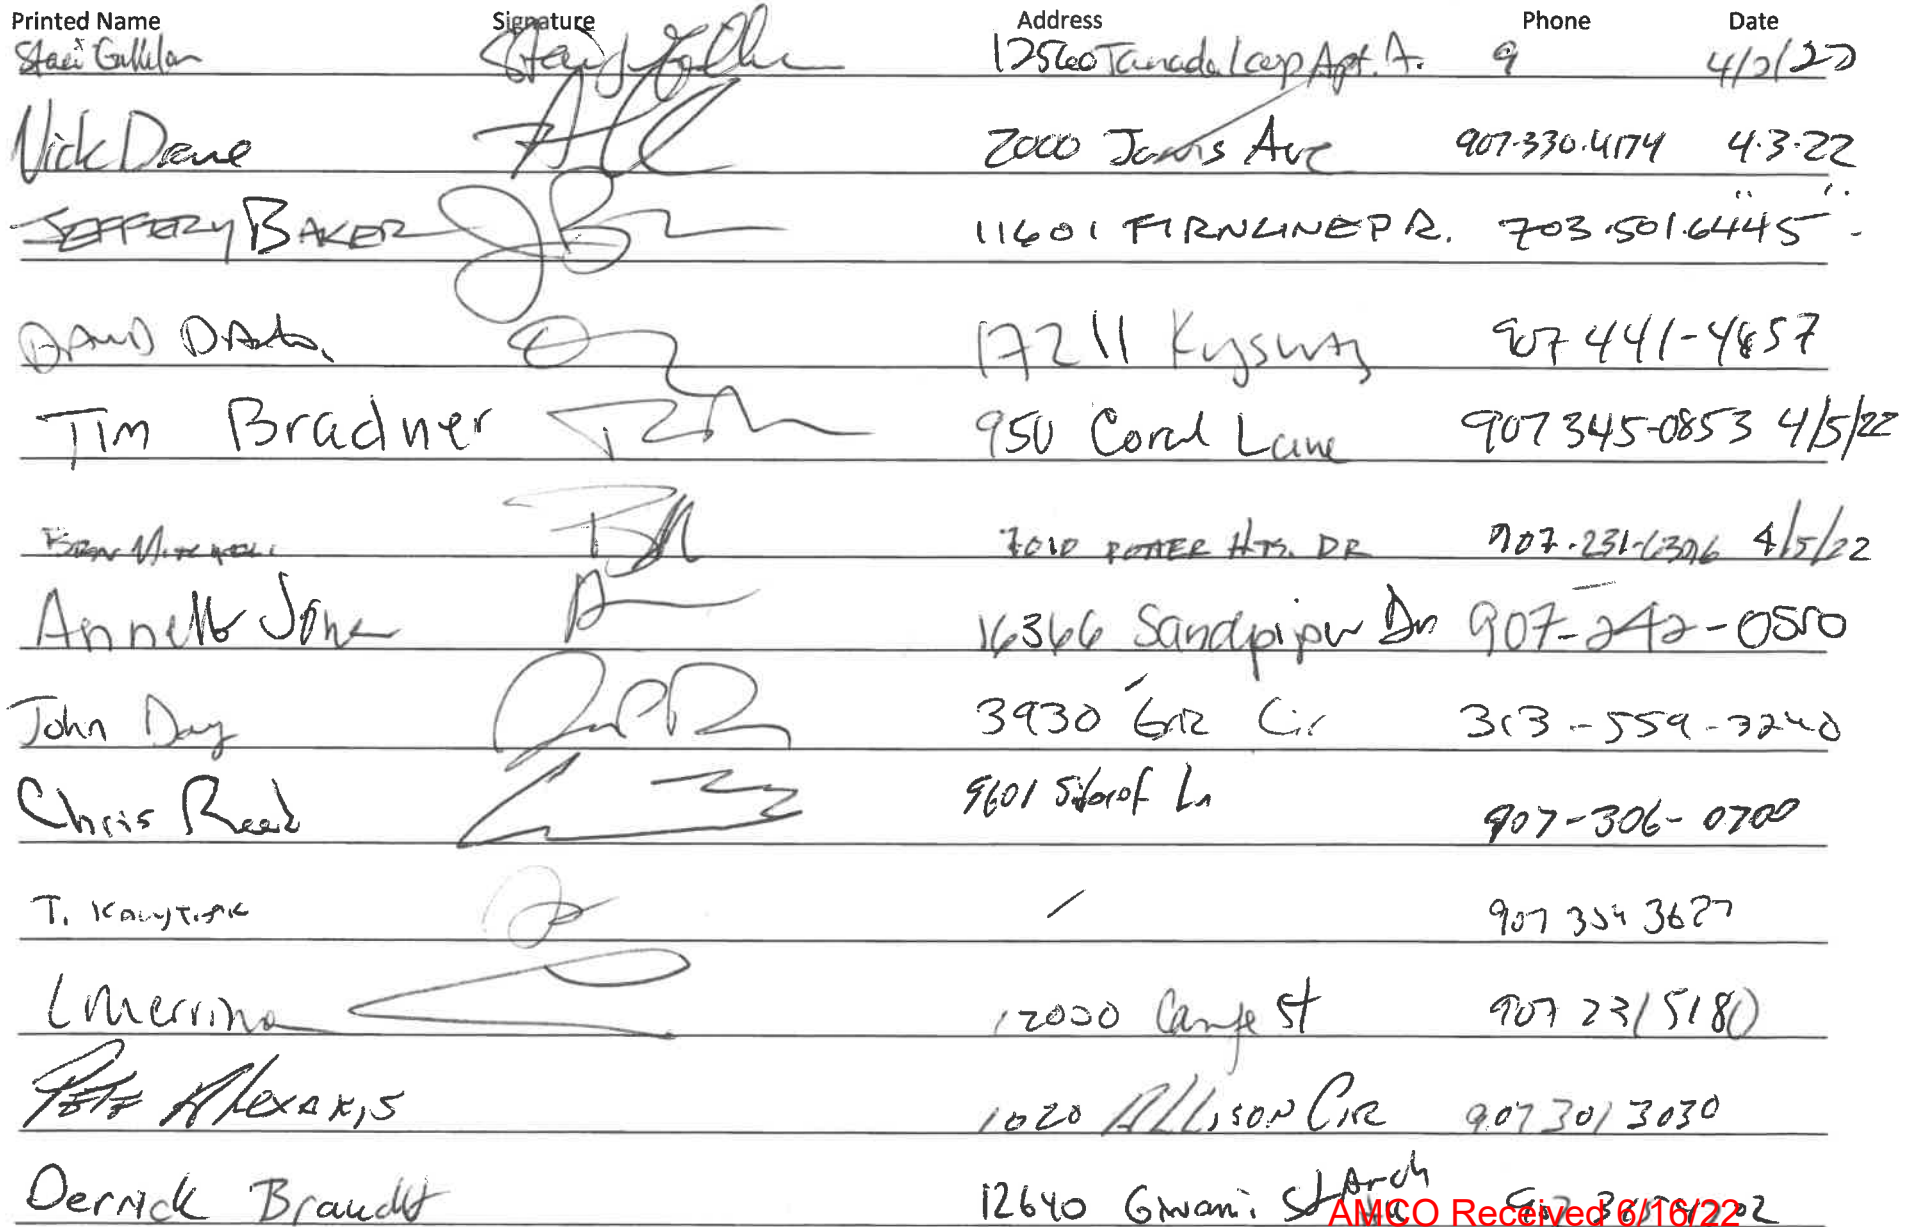 Printed Name Signature Address Phone Date
Staci 12560 Tanada Loop Apt. A. 9 4/2/22
Nick Dane 2000 Jarvis Ave 907-330-4174 4-3-22
JEFFERY BAKER 11601 FIRNLINE DR. 703.501.6445 " "
DAVID 17211 907 441-4857
Tim Bradner 950 Coral Lane 907 345-0853 4/5/22
7010 POTTER HTS. DR 907-231-6306 4/5/22
Annette Jones 16366 Sandpiper Dr 907-242-0550
John Day 3930 Cir 313-559-3240
Chris Reed 9601 Ln 907-306-0700
T. / 907 354 3627
L Merrina 12000 St 907 231 5180
PETE Alexakis 1020 ALLISON CIR 907 301 3030
Derrick Brandt 12640 St Anch
AMCO Received 6/16/22